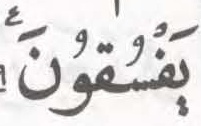 يَفْسُقُوْنَࣖ